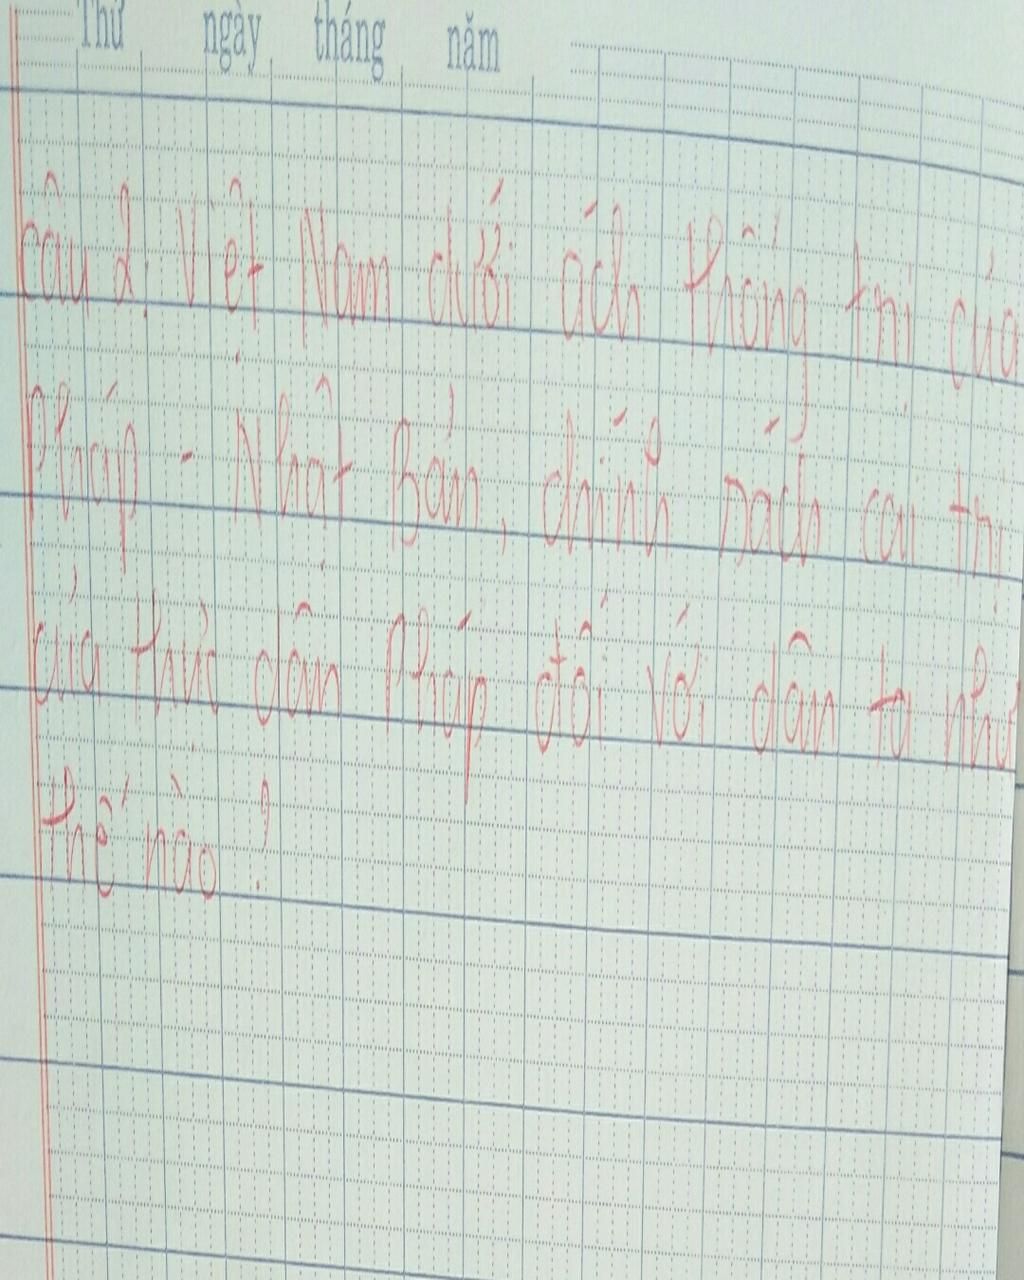 Thứ ngày tháng năm
câu 2. Việt Nam dưới ách thống trị của
Pháp - Nhật Bản, chính sách cai trị
của thực dân Pháp đối với dân ta như
thế nào?